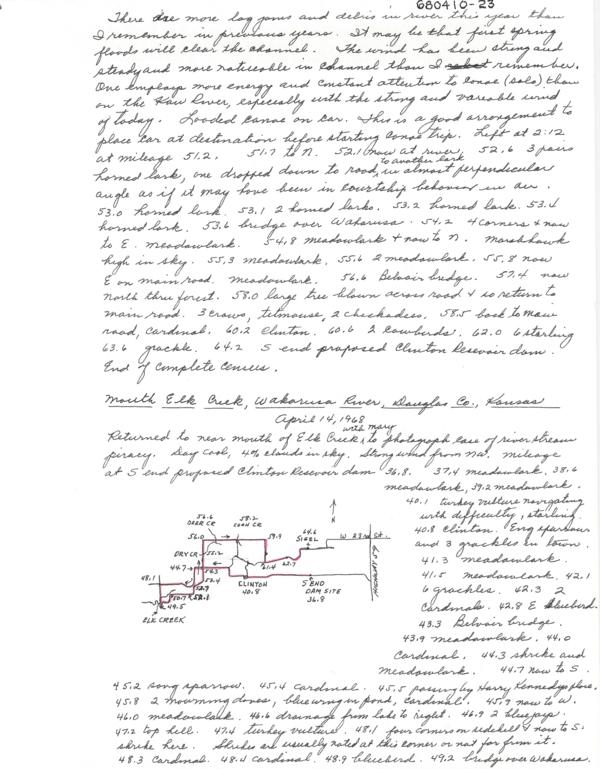 680410-23
There are more log jams and debris in river this year than
I remember in previous years. It may be that first spring
floods will clear the channel. The wind has been strong and
steady and more noticeable in channel than I remember.
One employs more energy and constant attention to canoe (solo) than
on the Kaw River, especially with the strong and variable wind
of today. Loaded canoe on car. This is a good arrangement to
place car at destination before starting canoe trip. Left at 2:12
at mileage 51.2. 51.7 to N. 52.1 now at river, 52.6 3 pairs
horned lark, one dropped down to road, to another lark in almost perpendicular
angle as if it may have been in courtship behavior in air.
53.0 horned lark. 53.1 2 horned larks. 53.2 horned lark. 53.4
horned lark. 53.6 bridge over Wakarusa. 54.2 4 corners & now
to E. meadowlark. 54.8 meadowlark & now to N. Marsh hawk
high in sky. 55.3 meadowlark. 55.6 2 meadowlark. 55.8 now
E on main road. Meadowlark. 56.6 Belvoir bridge. 57.4 now
north thru forest. 58.0 large tree blown across road & so return to
main road. 3 crows, titmouse, 2 chickadees. 58.5 back to main
road, cardinal. 60.2 Clinton. 60.6 2 cowbirds. 62.0 6 starling
63.6 grackle. 64.2 S end proposed Clinton Reservoir dam.
End of complete census.
Mouth Elk Creek, Wakarusa River, Douglas Co., Kansas
April 14, 1968
Returned to near mouth of Elk Creek, with Mary to photograph case of river stream
piracy. Day cool, 4% clouds in sky. Strong wind from NW. Mileage
at S end proposed Clinton Reservoir dam 36.8. 37.4 meadowlark. 38.6
meadowlark, 39.2 meadowlark.
40.1 turkey vulture navigating
with difficulty, starling.
40.8 Clinton. Eng sparrow
and 3 grackles in town.
41.3 meadowlark.
41.5 meadowlark. 42.1
6 grackles. 42.3 2
cardinals. 42.8 E bluebird.
43.3 Belvoir bridge.
43.9 meadowlark. 44.0
cardinal. 44.3 shrike and
meadowlark. 44.7 now to S.
56.6
DEER CR
58.2
COON CR
56.0
59.9
64.6
SIGEL
W 23rd St.
DRY CR
55.2
44.7
54.3
61.4
62.7
48.1
52.4
CLINTON
40.8
S END
DAM SITE
36.8
50.7
49.5
ELK CREEK
45.2 song sparrow. 45.4 cardinal. 45.5 passing by Harry Kennedys place.
45.8 2 mourning doves, bluewing in pond, cardinal. 45.9 now to W.
46.0 meadowlark. 46.6 drainage from lake to right. 46.9 2 bluejays.
47.2 top hill. 47.4 turkey vulture. 48.1 four corners on sidehill & now to S.
shrike here. Shrikes are usually noted at this corner or not far from it.
48.3 cardinal. 48.4 cardinal. 48.9 bluebird. 49.2 bridge over Wakarusa.